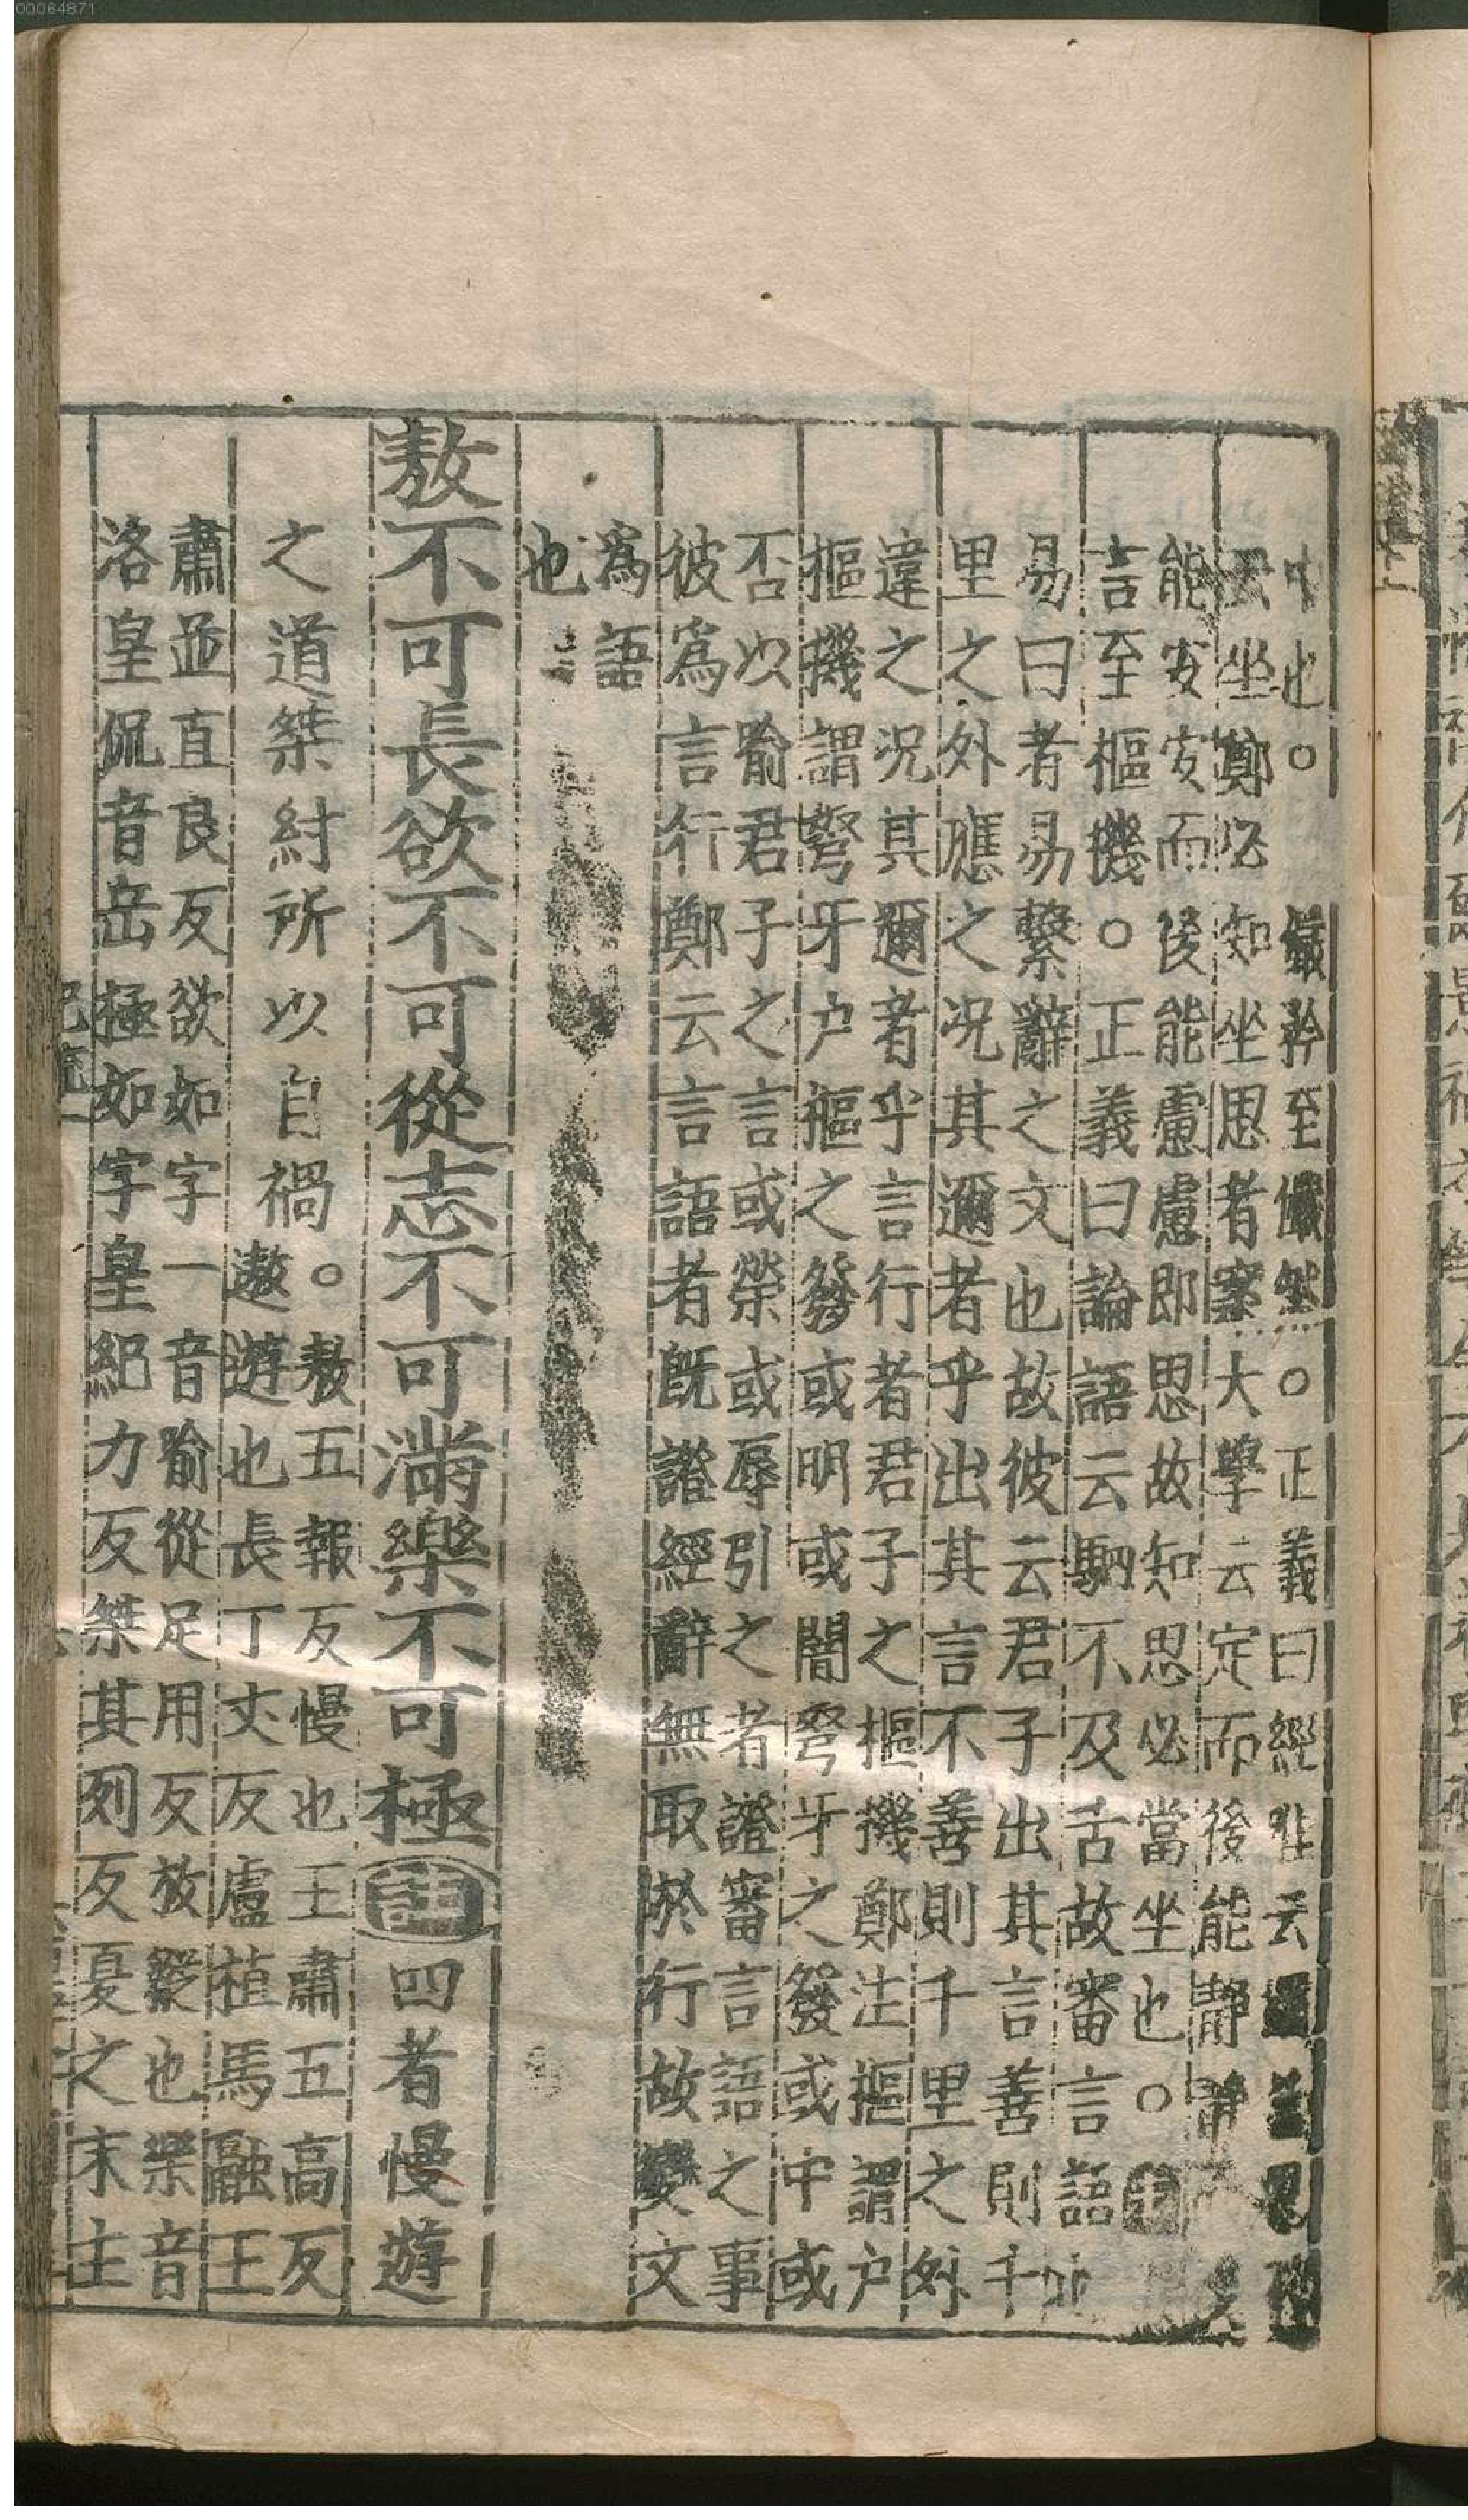 00064871
中也。　儼矜至儼然。正義曰經唯云
云坐鄭必知坐思者案大學云定而後能靜靜
能安安而後能慮慮即思故知思必當坐也。
言至樞機。正義曰論語云駟不及舌故審言語
易曰者易繫辭之文也故彼云君子出其言善則千
里之外應之況其邇者乎出其言不善則千里之外
違之況其邇者乎言行者君子之樞機鄭注樞謂户
樞機謂弩牙户樞之發或明或闇弩牙之發或中或
否以喻君子之言或榮或辱引之者證審言語之事
彼爲言行鄭云言語者旣證經辭無取於行故變文
爲語
也
敖不可長欲不可從志不可滿樂不可極註四者慢遊
之道桀紂所以自禍。敖五報反慢也王肅五高反
遨遊也長丁丈反盧植馬融王
肅並直良反欲如字一音喻從足用反放縱也樂音
洛皇侃音岳極如字皇紀力反桀其列反夏之末主